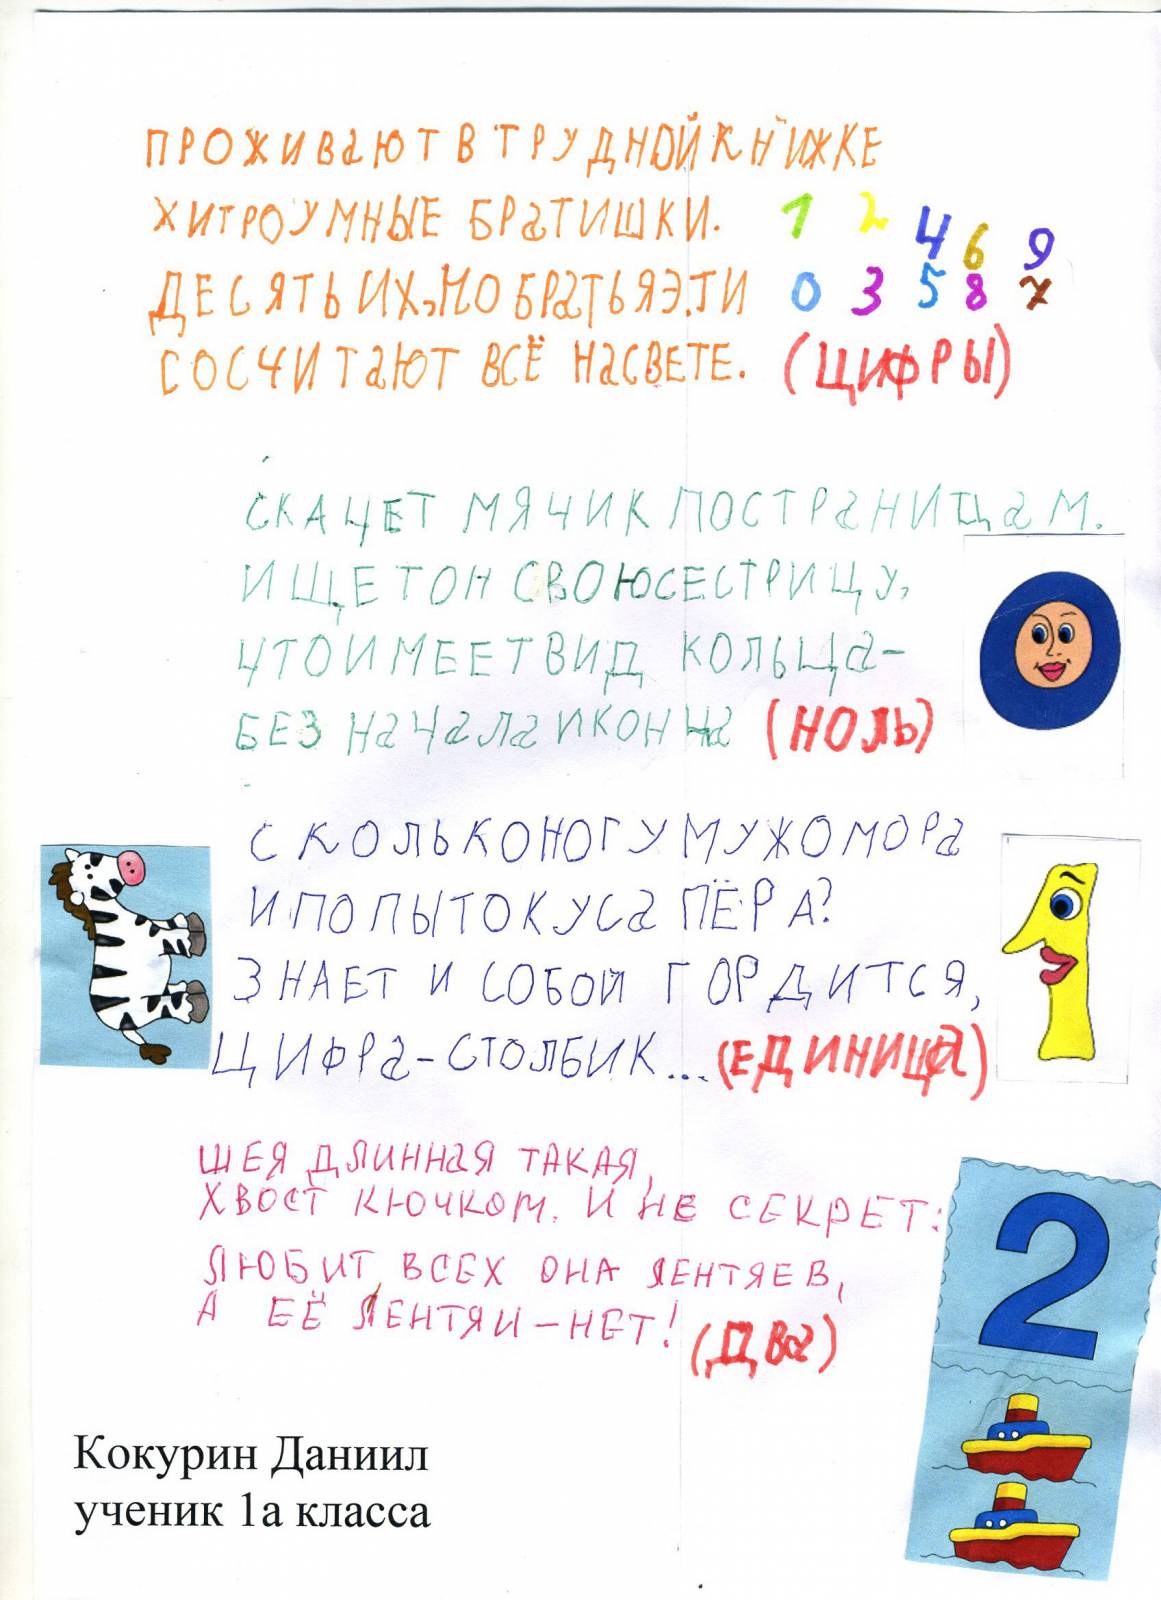 ПРОЖИВАЮТ В ТРУДНОЙ КНИЖКЕ
ХИТРОУМНЫЕ БРАТИШКИ.
1 2 4 6 9
ДЕСЯТЬ ИХ, НО БРАТЬЯ ЭТИ
0 3 5 8 7
СОСЧИТАЮТ ВСЁ НА СВЕТЕ. (ЦИФРЫ)
СКАЧЕТ МЯЧИК ПО СТРАНИЦАМ.
ИЩЕТ ОН СВОЮ СЕСТРИЦУ,
ЧТО ИМЕЕТ ВИД КОЛЬЦА-
БЕЗ НАЧАЛА И КОНЦА (НОЛЬ)
СКОЛЬКО НОГ У МУХОМОРА
И ПОПЫТОК У САПЁРА?
ЗНАЕТ И СОБОЙ ГОРДИТСЯ,
ЦИФРА-СТОЛБИК... (ЕДИНИЦА)
ШЕЯ ДЛИННАЯ ТАКАЯ,
ХВОСТ КЮЧКОМ. И НЕ СЕКРЕТ:
ЛЮБИТ ВСЕХ ОНА ЛЕНТЯЕВ,
А ЕЁ ЛЕНТЯИ-НЕТ!
(ДВА)
2
Кокурин Даниил
ученик 1а класса